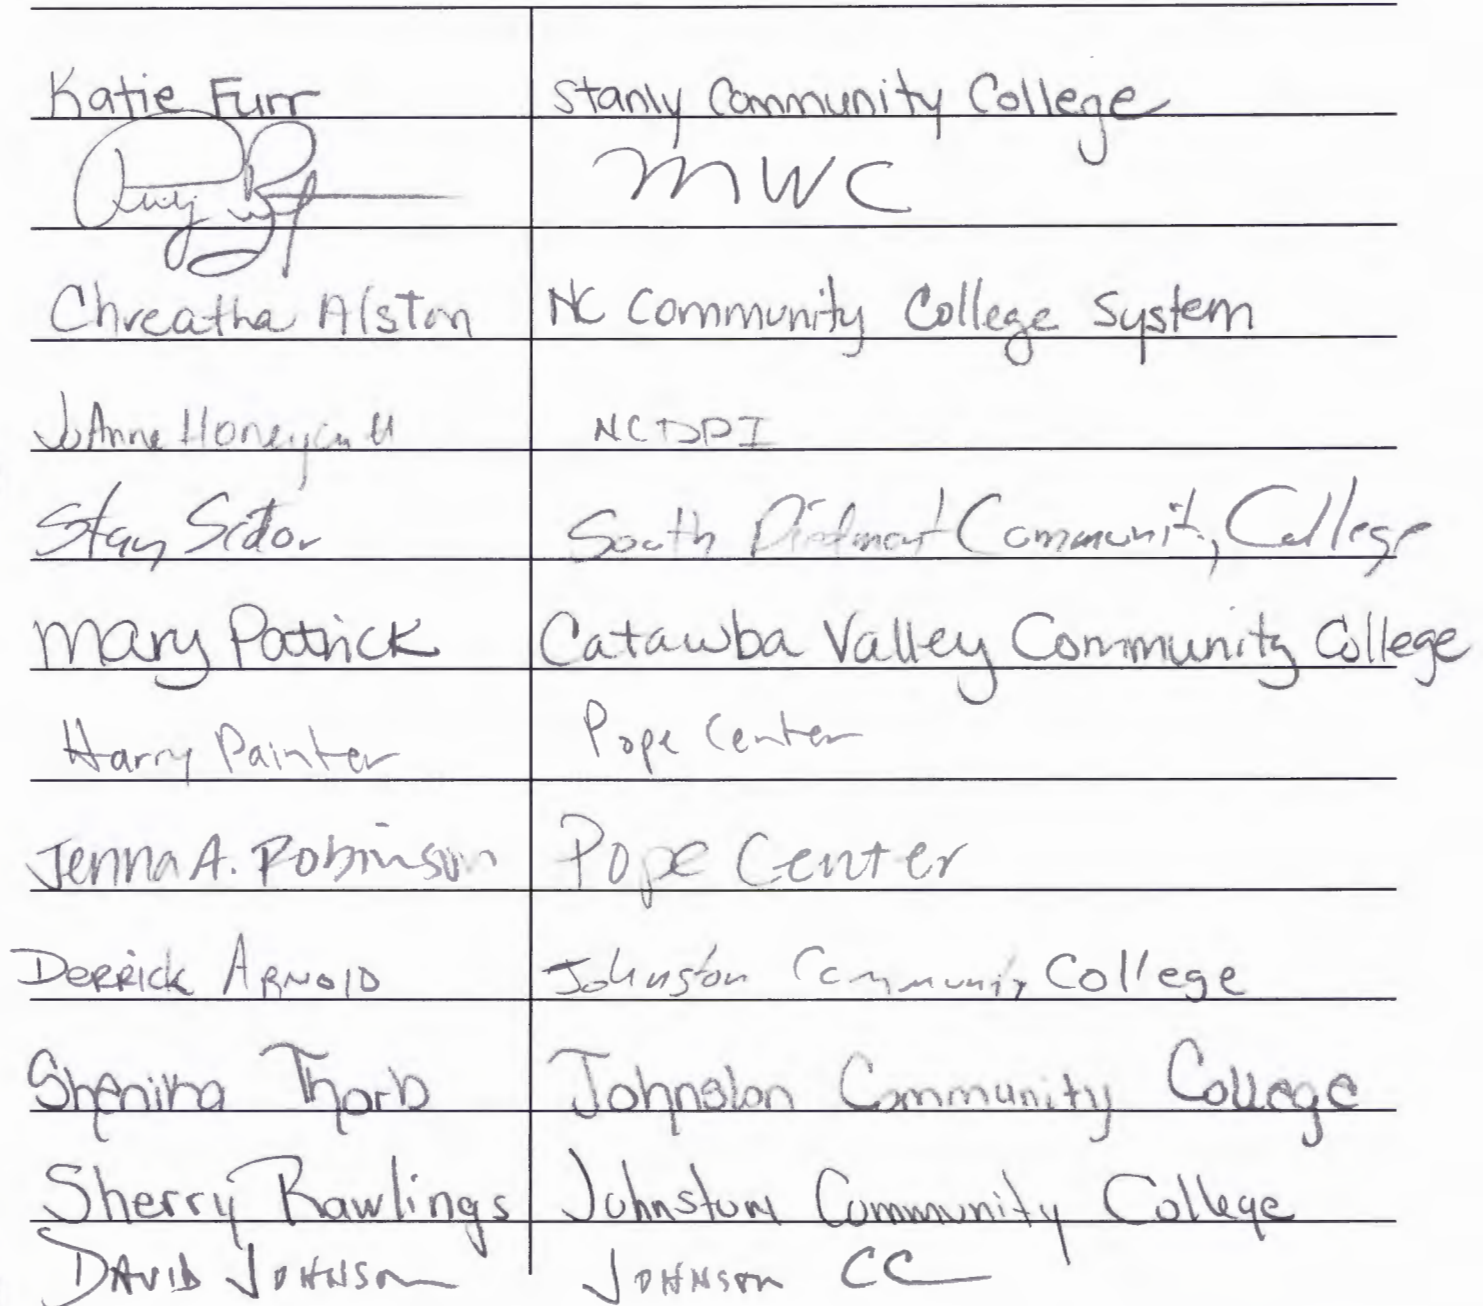 Katie Furr Stanly Community College
MWC
Chreatha Alston NC Community College System
JoAnne Honeycutt NCDPI
South Piedmont Community College
Mary Patrick Catawba Valley Community College
Harry Painter Pope Center
Jenna A. Robinson Pope Center
Derrick Arnold Johnston Community College
Johnston Community College
Sherry Rawlings Johnston Community College
David Johnson Johnson CC